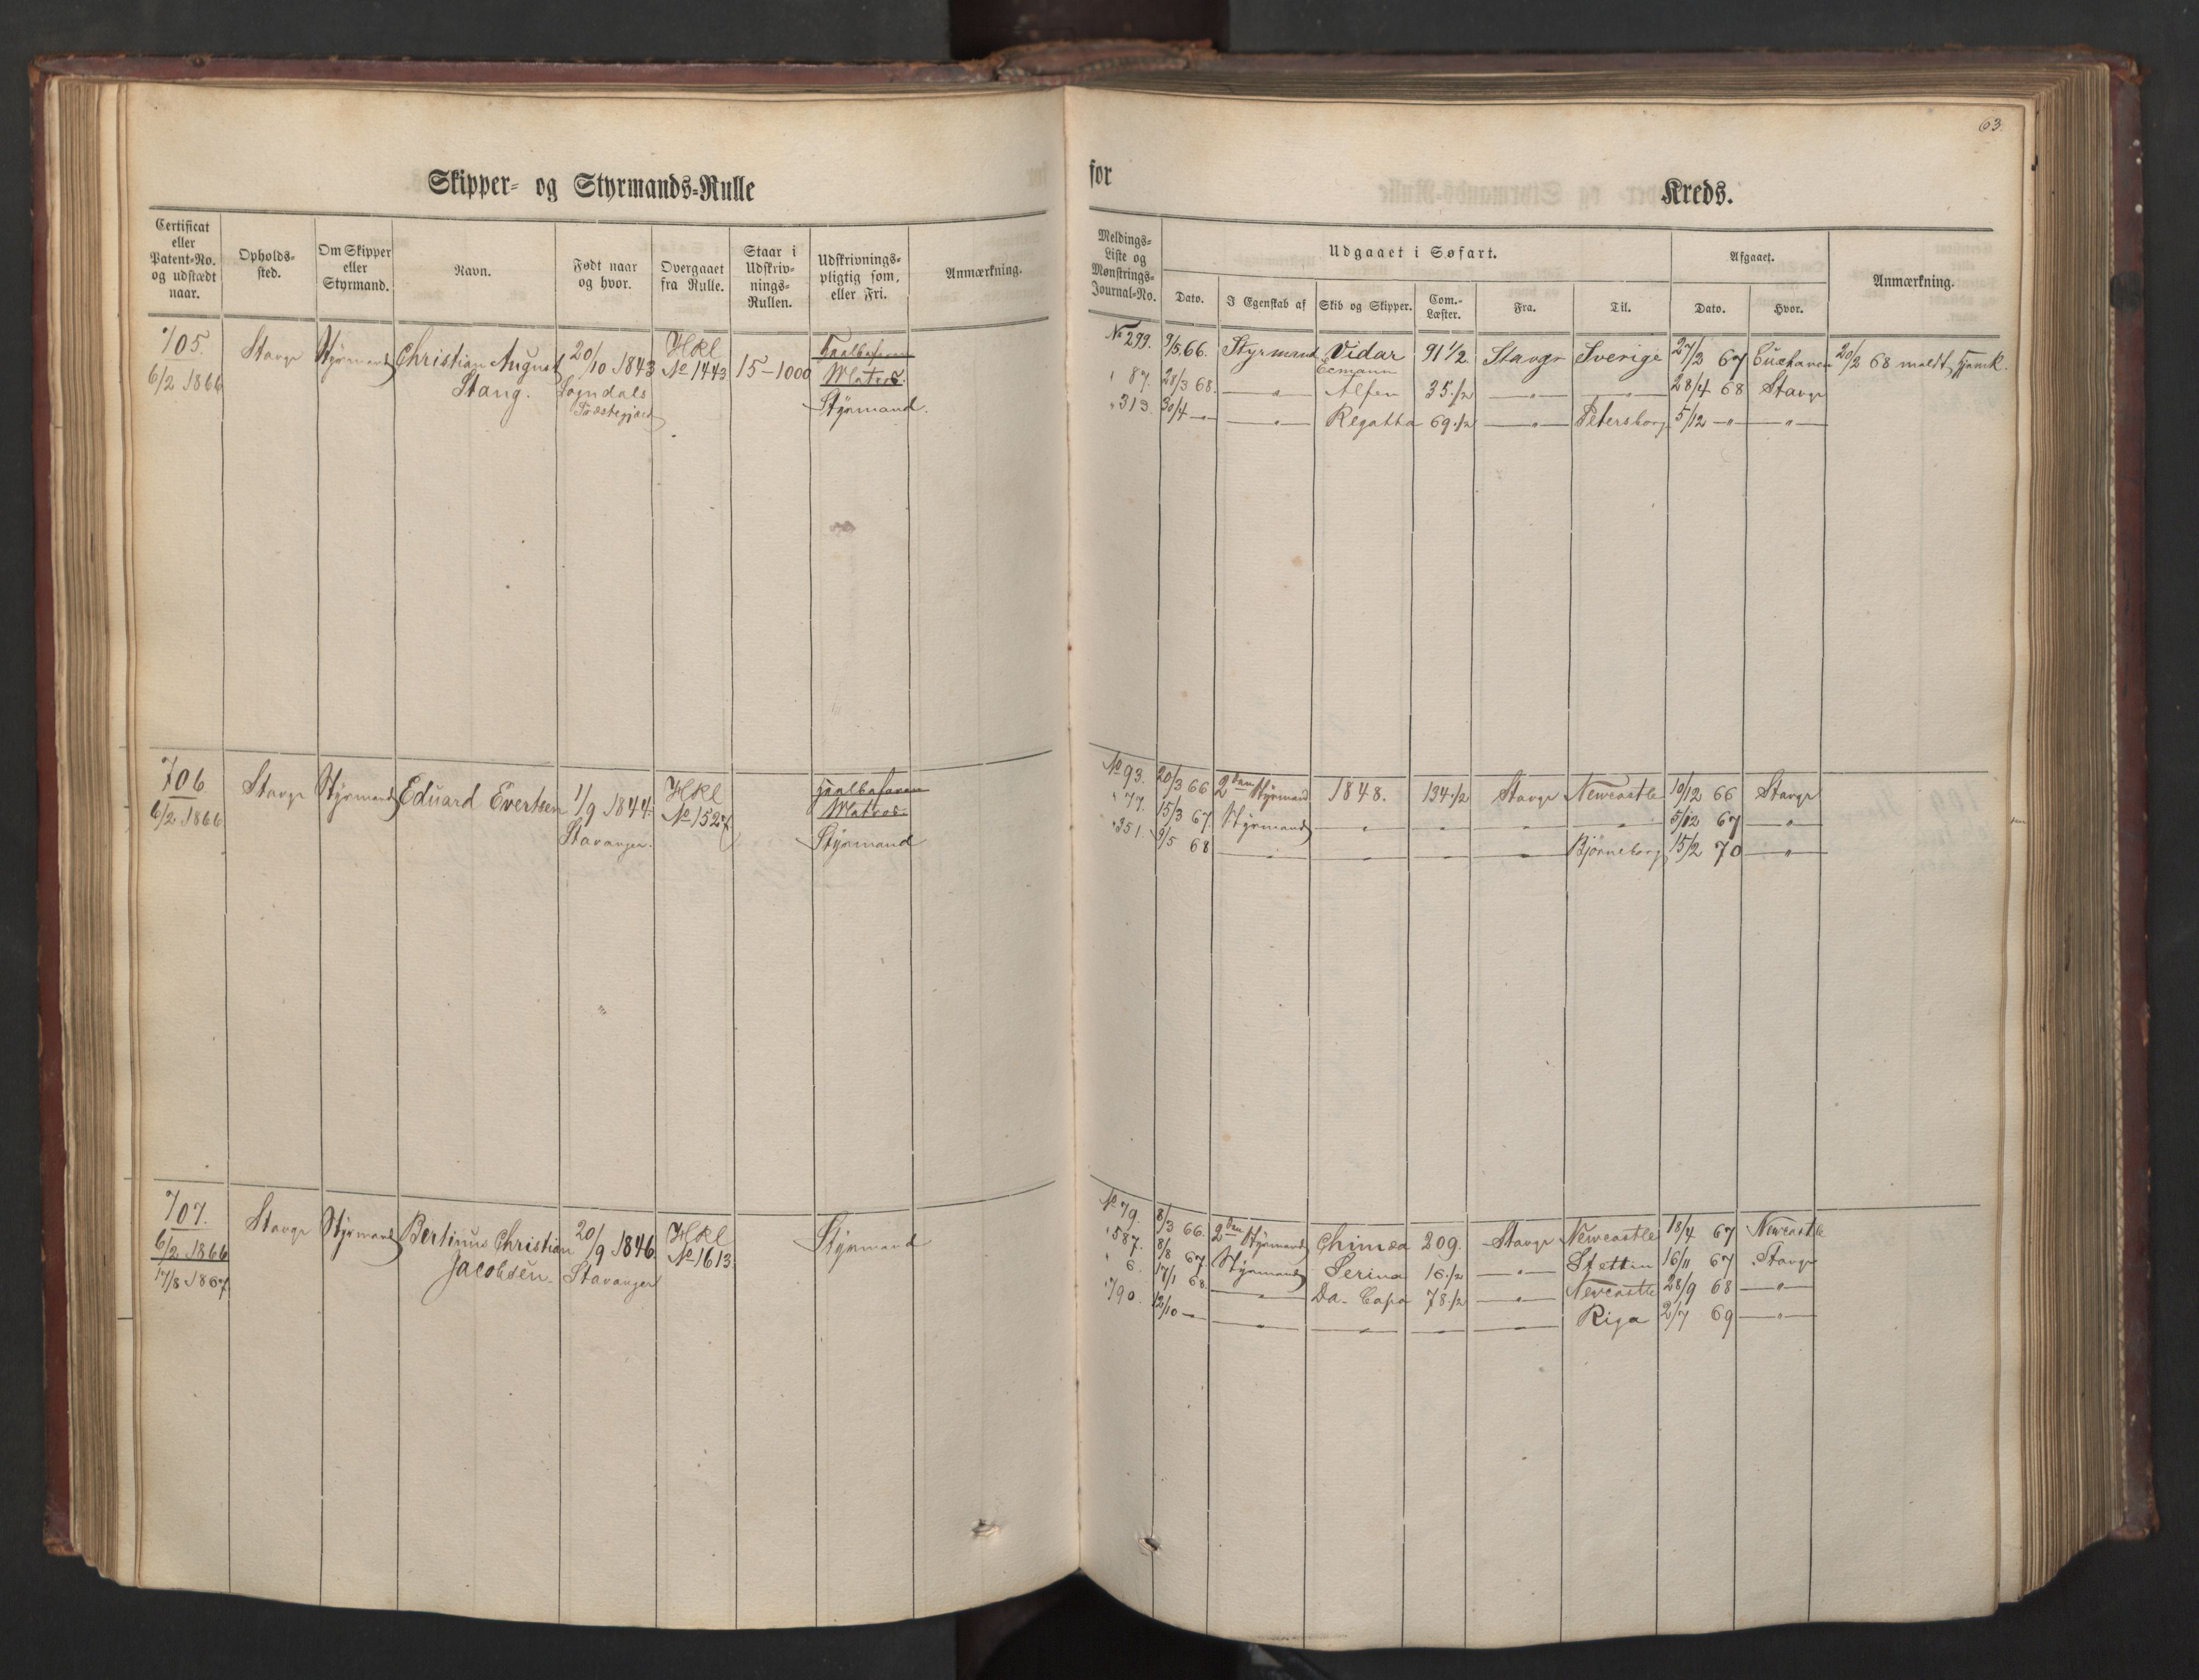 63.
Skipper- og Styrmands-Rulle
for
Kreds.
Certificat eller Patent-No. og udstædt naar.
Opholds-sted.
Om Skipper eller Styrmand.
Navn.
Født naar og hvor.
Overgaaet fra Rulle.
Staar i Udskriv-nings-Rullen.
Udskrivnings-pligtig som, eller Fri.
Anmærkning.
Meldings-Liste og Mønstrings-Journal-No.
Udgaaet i Søfart.
Dato.
I Egenskab af
Skib og Skipper.
Com.-Læster.
Fra.
Til.
Afgaaet.
Dato.
Hvor.
Anmærkning.
705.
6/2 1866
Stavgr
Styrmand
Christian August
Stang.
20/10 1843
Sogndals
Hkl
No 1443
15-1000
Matros.
Styrmand.
No 299. 9/5 66. Styrmand Vidar 91 1/2 Stavgr Sverige 27/2 67 Cuxhaven 20/2 68 meldt hjemk.
" 87. 28/3 68. —"— Alfen 35.1/2 —"— —"— 28/4 68 Stavgr
" 313. 30/4 —"— —"— Regatta 69.1/2 —"— Petersborg 5/12 —"— —"—
706.
6/2 1866
Stavgr
Styrmand
Eduard Evertsen
1/9 1844.
Stavanger.
Hkl
No 1527
Matros.
Styrmand
No 93. 20/3 66 2den Styrmand 1848. 134.1/2 Stavgr Newcastle 10/12 66 Stavgr
" 77. 15/3 67 Styrmand —"— —"— —"— —"— 5/12 67 —"—
" 251. 9/5 68 —"— —"— —"— —"— Bjørneborg 15/2 70 —"—
707.
6/2 1866
17/8 1867
Stavgr
Styrmand
Bertinus Christian
Jacobsen.
20/9 1846
Stavanger
Hkl
No 1613
Styrmand
No 79. 8/3 66. 2den Styrmand Chimæa 209. Stavgr Newcastle 18/4 67 Newcastle
" 587. 8/8 67 Styrmand Serina 16.1/2 —"— Stettin 16/11 67 Stavgr
" 6. 17/1 68. —"— Da. Capo 78.1/2 —"— Newcastle 28/9 68 —"—
" 790. 12/10 —"— —"— —"— —"— —"— Riga 2/7 69 —"—